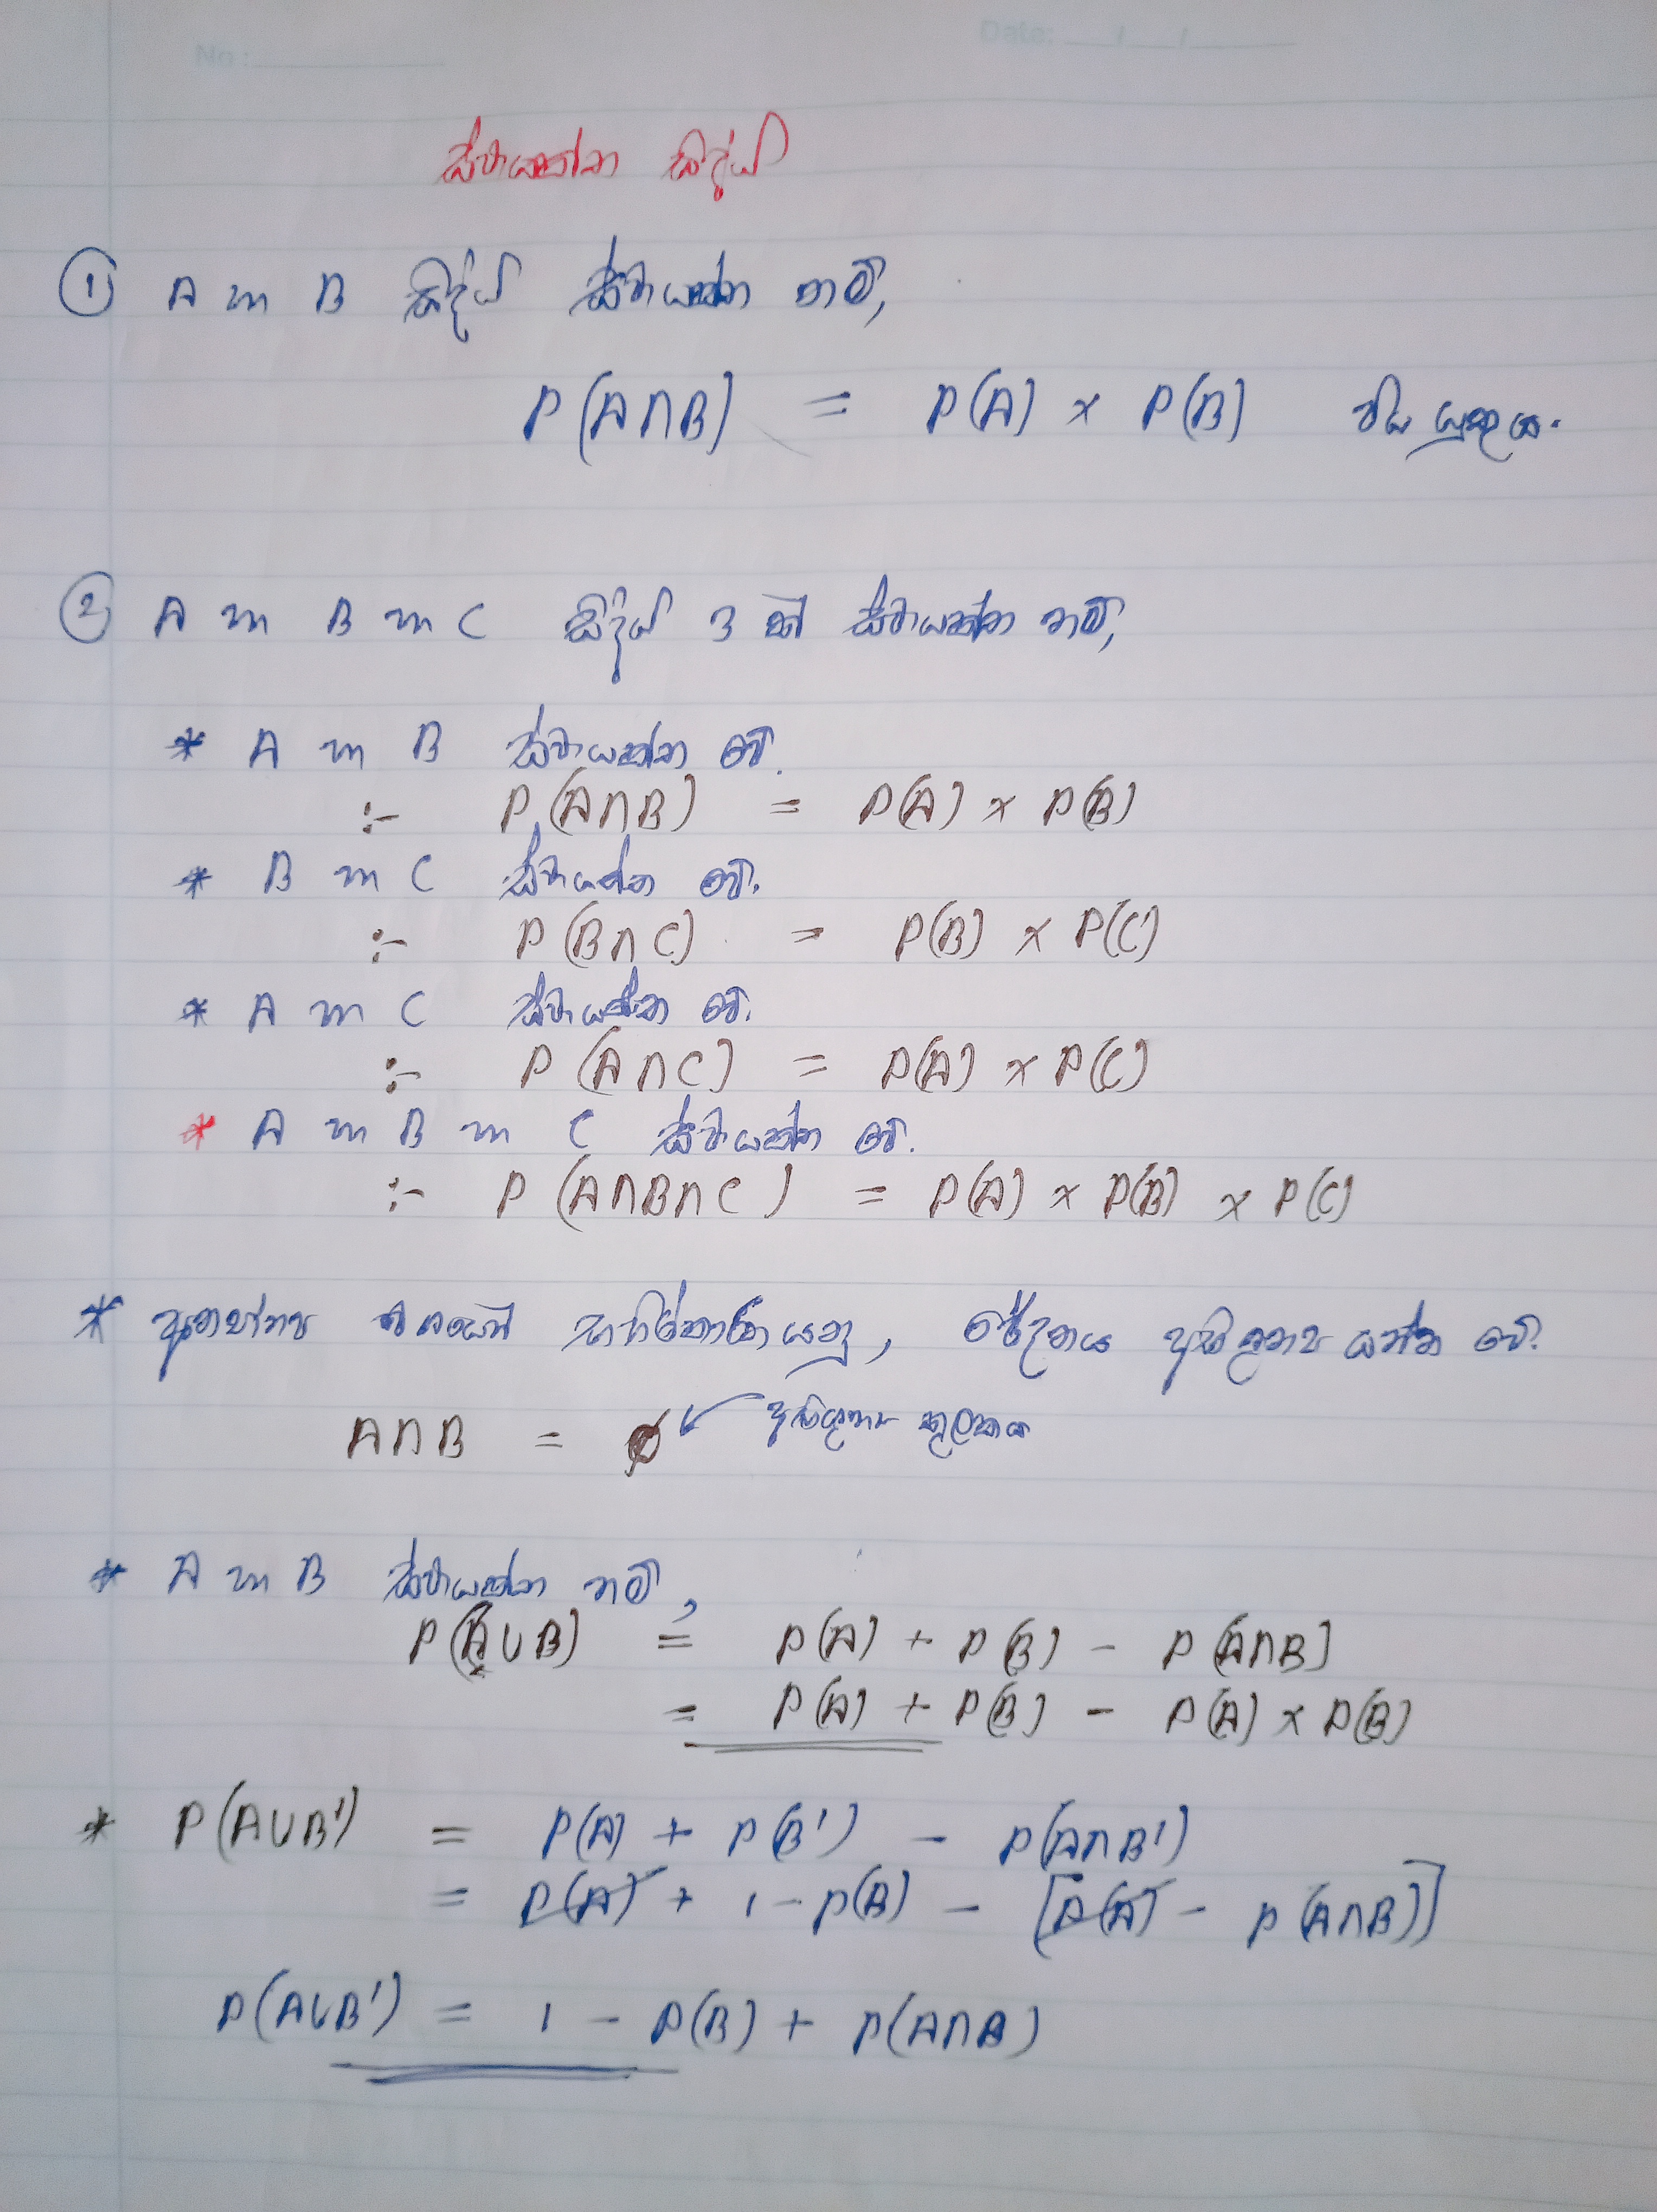 No : Date: / /
ස්වායත්ත සිද්ධි
① A හා B සිද්ධි ස්වායත්ත නම්,
P(A∩B) = P(A) × P(B) විය යුතුය.
② A හා B හා C සිද්ධි 3 ක් ස්වායත්ත නම්,
* A හා B ස්වායත්ත වේ.
:- P(A∩B) = P(A) × P(B)
* B හා C ස්වායත්ත වේ.
:- P(B∩C) = P(B) × P(C)
* A හා C ස්වායත්ත වේ.
:- P(A∩C) = P(A) × P(C)
* A හා B හා C ස්වායත්ත වේ.
:- P(A∩B∩C) = P(A) × P(B) × P(C)
* අන්‍යෝන්‍ය වශයෙන් බහිෂ්කාර යනු, ඡේදනය අභිශූන්‍ය යන්න වේ.
A∩B = ∅ අභිශූන්‍ය කුලකය
* A හා B ස්වායත්ත නම්,
P(A∪B) = P(A) + P(B) - P(A∩B)
= P(A) + P(B) - P(A) × P(B)
* P(A∪B') = P(A) + P(B') - P(A∩B')
= P(A) + 1 - P(B) - [P(A) - P(A∩B)]
P(A∪B') = 1 - P(B) + P(A∩B)